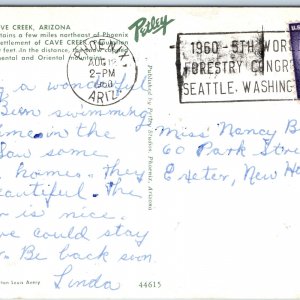 VE CREEK, ARIZONA
ntains a few miles northeast of Phoenix
ettlement of CAVE CREEK
feet. In the distance,
mental and Oriental mountains.
Petley
PHOENIX
AUG 18
2-PM
1960
ARIZ.
1960-5TH WOR
FORESTRY CONGR
SEATTLE, WASHING
Published by Petley Studios, Phoenix, Arizona
a wonderful
Been swimming
time in the
Saw some
homes. They
beautiful. The
r is nice.
we could stay
Be back soon
Linda
Miss Nancy B
60 Park Stre
Exeter, New H
ton Louis Avery
44615